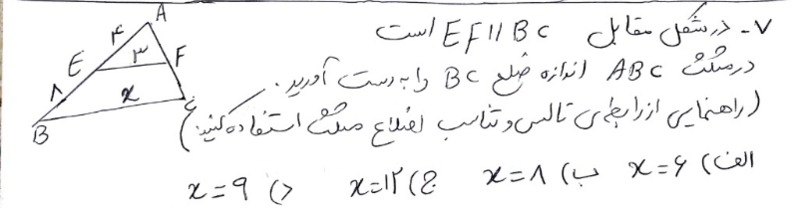 ۷- در شکل مقابل EF||BC است
در مثلث ABC اندازه ضلع BC را به دست آورید.
(راهنمایی از رابطه‌ی تالس و تناسب اضلاع مثلث استفاده کنید.)
الف) x=۶ ب) x=۸ ج) x=۱۲ د) x=۹
A
۴
E ۳ F
۸
x
C
B